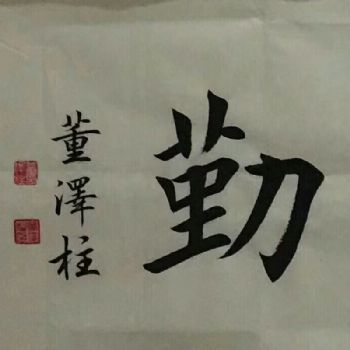 勤
董澤柱